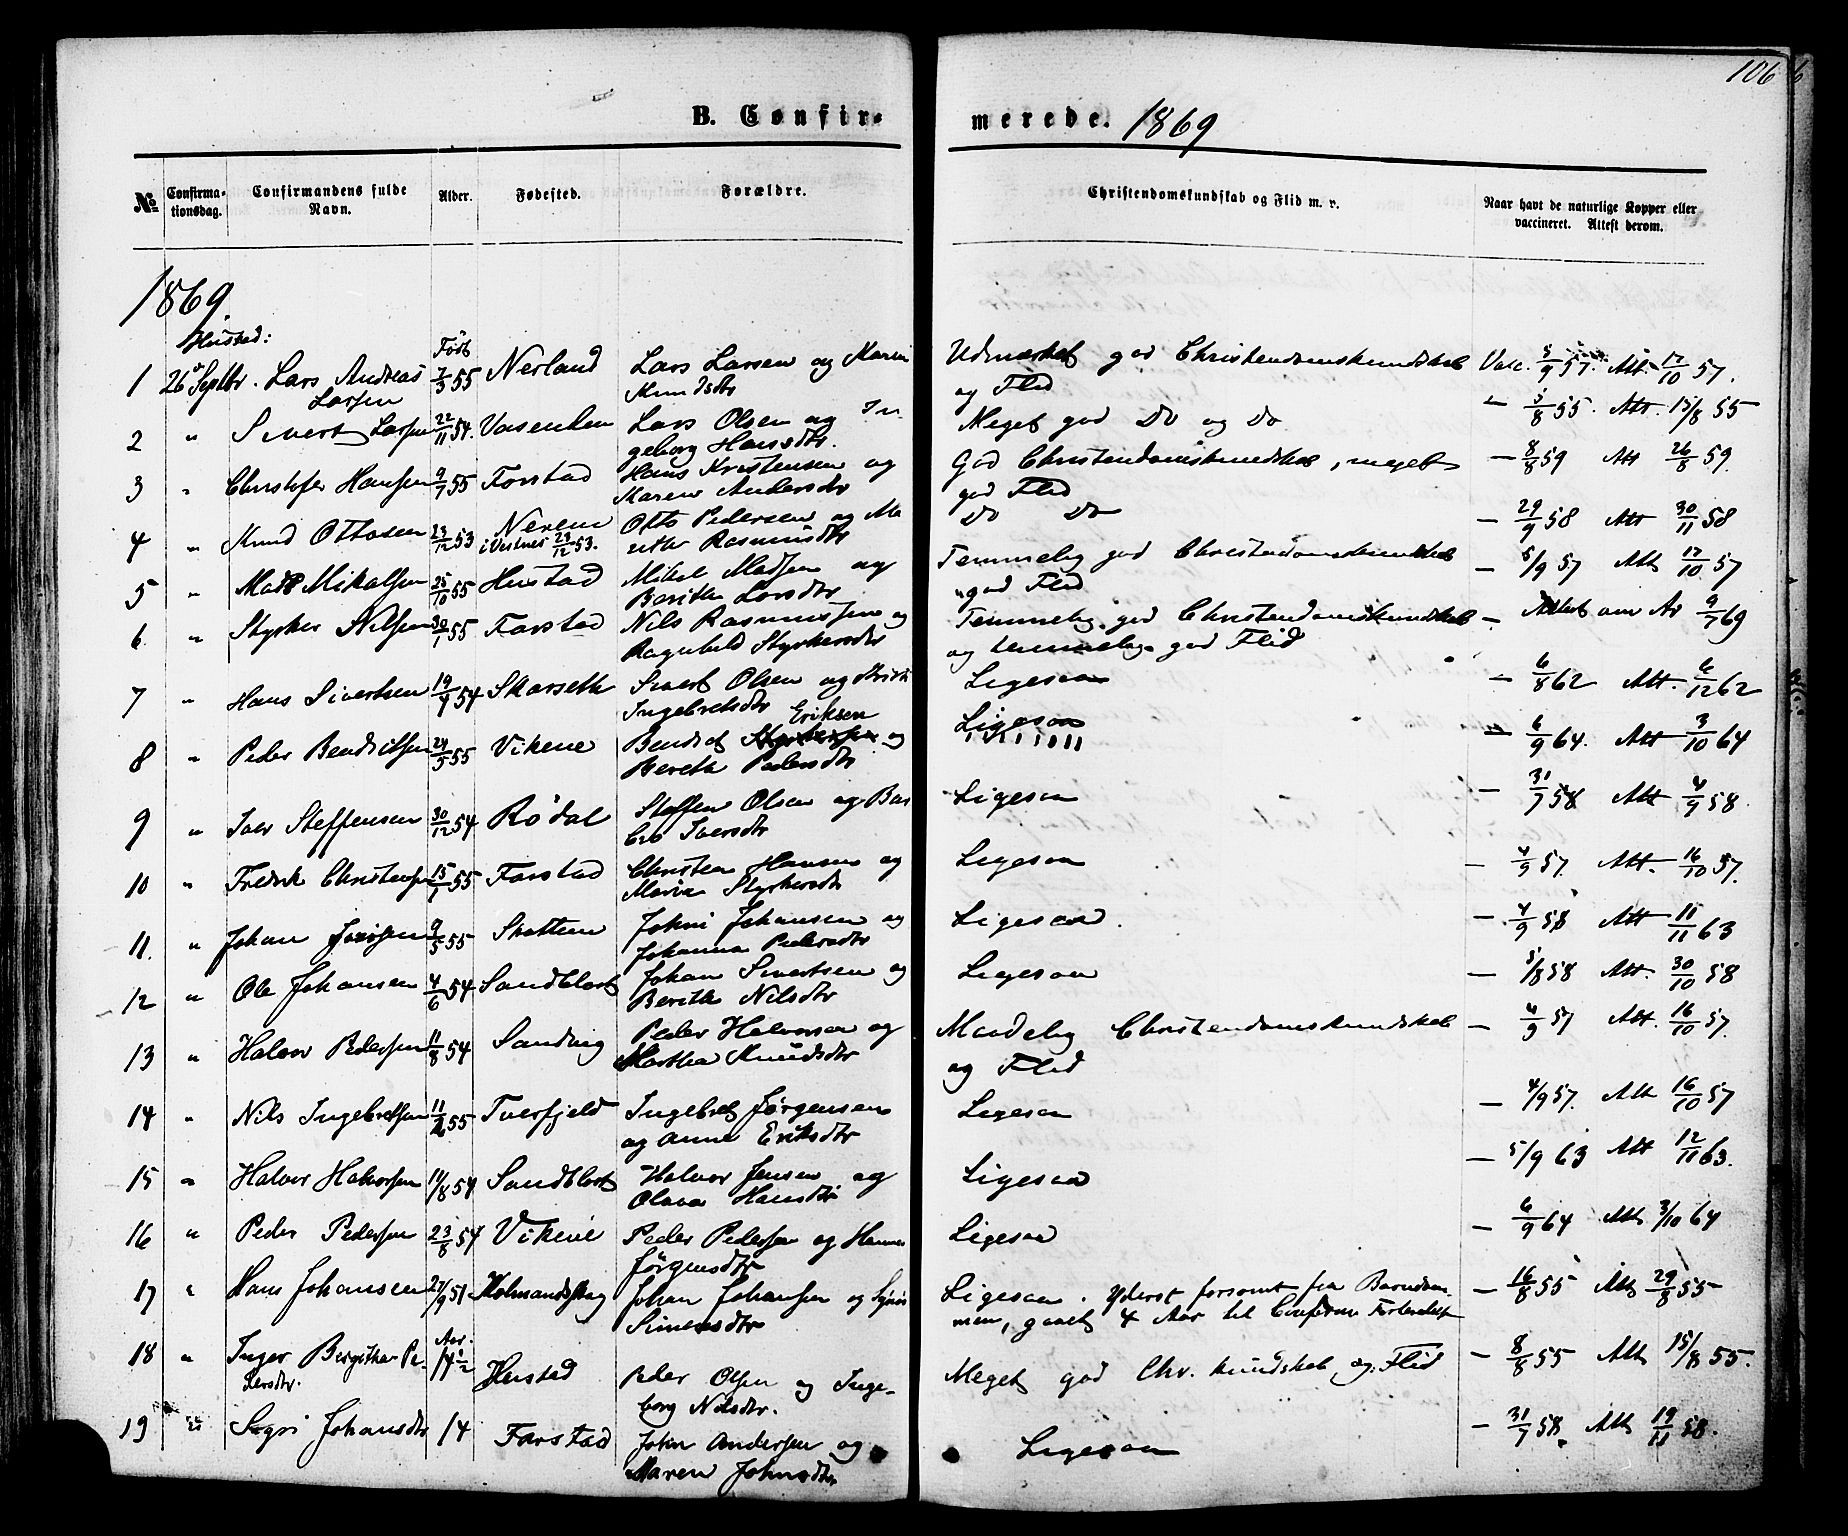 106
B. Confir- merede. 1869
No
Confirma-
tionsdag.
Confirmandens fulde
Navn.
Alder.
Fødested.
Forældre.
Christendomskundskab og Flid m. v.
Naar havt de naturlige Kopper eller
vaccineret. Attest derom.
1869.
Hustad:
Født
1 26 Septbr. Lars Andreas 7/3 55 Nerland Lars Larsen og Karen Udmærket god Christendomskundskab Vacc. 5/9 57. Att. 17/10 57.
Larsen Knudsdtr og Flid
2 " Sivert Larsen 22/11 54. Vasenden Lars Olsen og In- Meget god Do og Do — 3/8 55. Att. 15/8 55
geborg Hansdtr.
3 " Christofer Hansen 9/7 55 Farstad Hans Kristensen og God Christendomskundskab, meget — 8/8 59 Att 26/8 59.
Karen Andersdtr god Flid
4 " Knud Ottosen 23/12 53 Nerem Otto Pedersen og Ma Do Do — 29/9 58 Att 30/11 58
i Vestnes 23/12 53. rithe Rasmusdtr
5 " Mads Mikalsen 25/10 55 Hustad Mikal Madsen og Temmelig god Christendomskundskab — 5/9 57 Att 17/10 57
Berithe Larsdtr god Flid
6. " Styrker Nilsen 30/7 55 Farstad Nils Rasmussen og Temmelig god Christendomskundskab — Attest om Ar 9/7 69
Ragnhild Styrkersdtr og temmelig god Flid
7 " Hans Sivertsen 19/9 54 Skarseth Sivert Olsen og Ligesaa — 6/8 62 Att. 6/12 62
Ingebretsdtr
8 " Peder Bendritsen 24/5 55 Vikene Bendret Eriksen og Ligesaa — 6/9 64. Att 3/10 64
Bereth Pedersdtr
9 " Iver Steffensen 30/12 54 Rødal Steffen Olsen og Bar Ligesaa — 31/7 58 Att 4/9 58.
bro Iversdtr
10 " Fredrik Christensen 15/7 55 Farstad Christen Hansen og Ligesaa — 4/9 57 Att. 16/10 57.
Maria Styrkersdtr
11. " Johan 9/5 55 Skottem Johansen og Ligesaa. — 4/9 58 Att 11/11 63
Johanna Pedersdtr
12 " Ole Johansen 4/6 54 Sandblost Johan Sivertsen og Ligesaa — 5/8 58 Att. 30/10 58
Berith Nilsdtr
13 " Halvor Pedersen 11/8 54 Sandvig Peder Halvorsen og Maadelig Christendomskundskab — 4/9 57 Att. 16/10 57.
Martha Knudsdtr og Flid
14 " Nils Ingebretsen 55 Tverfjeld Ingebret Jørgensen Ligesaa — 4/9 57. Att 16/10 57
og Anne Eriksdtr
15 " Halvor Halvorsen 11/8 54 Sandblost Halvor Jensen og Ligesaa — 5/9 63 Att 12/11 63.
Olava Hansdtr
16 " Peder Pedersen 23/8 54 Vikene Peder Pedersen og Hanna Ligesaa — 6/9 64 Att 3/10 64
Jørgensdtr
17 " Hans Johansen 27/9 51 Johan Johansen og Ligesaa. Yderst forsømt fra Barndom- — 16/8 55 Att 29/8 55
Simensdtr men, gaaet 4 Aar til Confirm. Forberedelse
18 " Inger Bergitha Pe- Aar. 14½ Hustad Peder Olsen og Inge- Meget god Chr. kundskab og Flid — 8/8 55 Att 15/8 55.
dersdtr. borg Nilsdtr.
19 " Johansdtr 14 Farstad John Andersen og Ligesaa — 31/7 58. Att 19/11 58.
Maren Johnsdtr